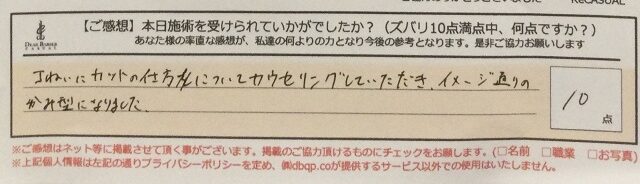 ReCASUAL
【ご感想】本日施術を受けられていかがでしたか？（ズバリ10点満点中、何点ですか？）
あなた様の率直な感想が、私達の何よりの力となり今後の参考となります。是非ご協力お願いします
DEAR BARBER
丁ねいにカットの仕方などについてカウセリングしていただき、イメージ通りの
かみ型になりました。
10
点
※ご感想はネット等に掲載させて頂く事がございます。掲載のご協力頂けるものにチェックをお願します。（□名前 □職業 □お写真）
※上記個人情報は左記の通りプライバシーポリシーを定め、㈱dbqp.coが提供するサービス以外での使用はいたしません。